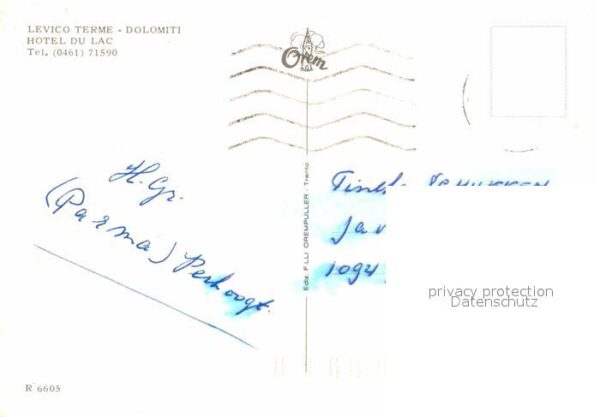 LEVICO TERME - DOLOMITI
HOTEL DU LAC
Tel. (0461) 71590
Orem
H. Gr.
(Parma)
Ediz. F.LLI OREMPULLER - Trento
1094
privacy protection
Datenschutz
R' 6605